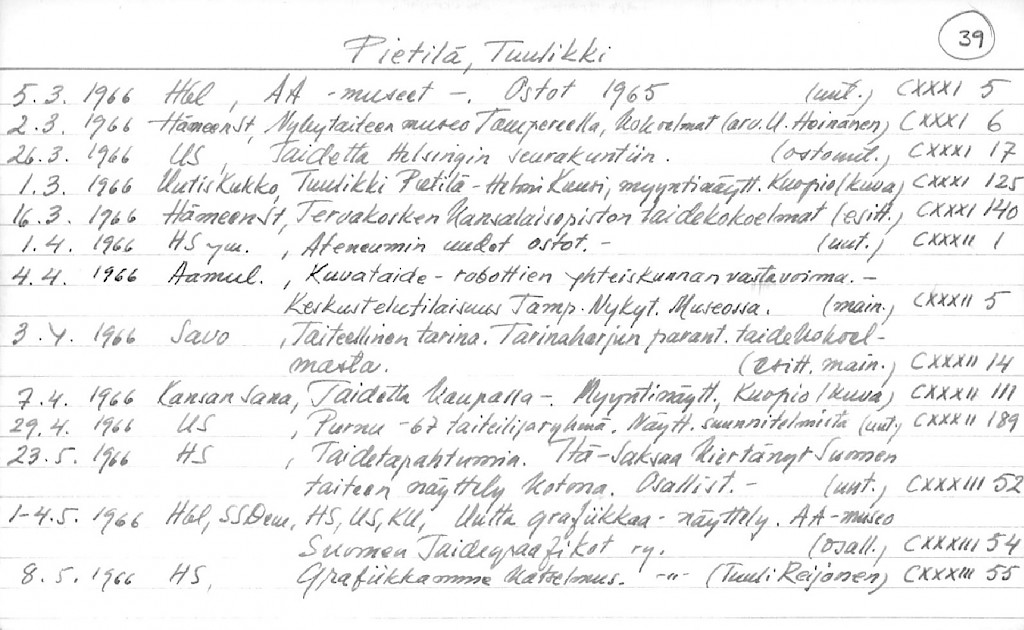 39
Pietilä, Tuulikki
5.3. 1966 Hbl, AA-museet -. Ostot 1965 (uut.) CXXXI 5
2.3. 1966 HämeenSt, Nykytaiteen museo Tampereella, kokoelmat (arv. U. Hoinänen) CXXXI 6
26.3. 1966 US, Taidetta Helsingin seurakuntiin. (ostomäl.) CXXXI 17
1.3. 1966 UutisKukko, Tuulikki Pietilä - Helmi Kuusi, myyntinäytt. Kuopio (kuva) CXXXI 125
16.3. 1966 HämeenSt, Tervakosken kansalaisopiston taidekokoelmat (esitt.) CXXXI 140
1.4. 1966 HS ym., Ateneumin uudet ostot. - (uut.) CXXXII 1
4.4. 1966 Aamul., Kuvataide - robottien yhteiskunnan vastavoima. -
Keskustelutilaisuus Tamp. Nykyt. Museossa. (main.) CXXXII 5
3.4. 1966 Savo, Taiteellinen tarina. Tarinaharjun parant. taidekokoel-
masta. (esitt. main.) CXXXII 14
7.4. 1966 Kansan Sana, Taidetta kaupassa -. Myyntinäytt., Kuopio (kuva) CXXXII 111
29.4. 1966 US, Purnu -67 taiteilijaryhmä. Näytt. suunnitelmista (uut.) CXXXII 189
23.5. 1966 HS, Taidetapahtumia. Itä-Saksaa kiertänyt Suomen
taiteen näyttely kotona. Osallist. - (uut.) CXXXIII 52
1-4.5. 1966 Hbl, SSDem, HS, US, KU, Uutta grafiikkaa - näyttely. AA-museo
Suomen Taidegraafikot ry. (osall.) CXXXIII 54
8.5. 1966 HS, Grafiikkamme katselmus. -"- (Tuuli Reijonen) CXXXIII 55